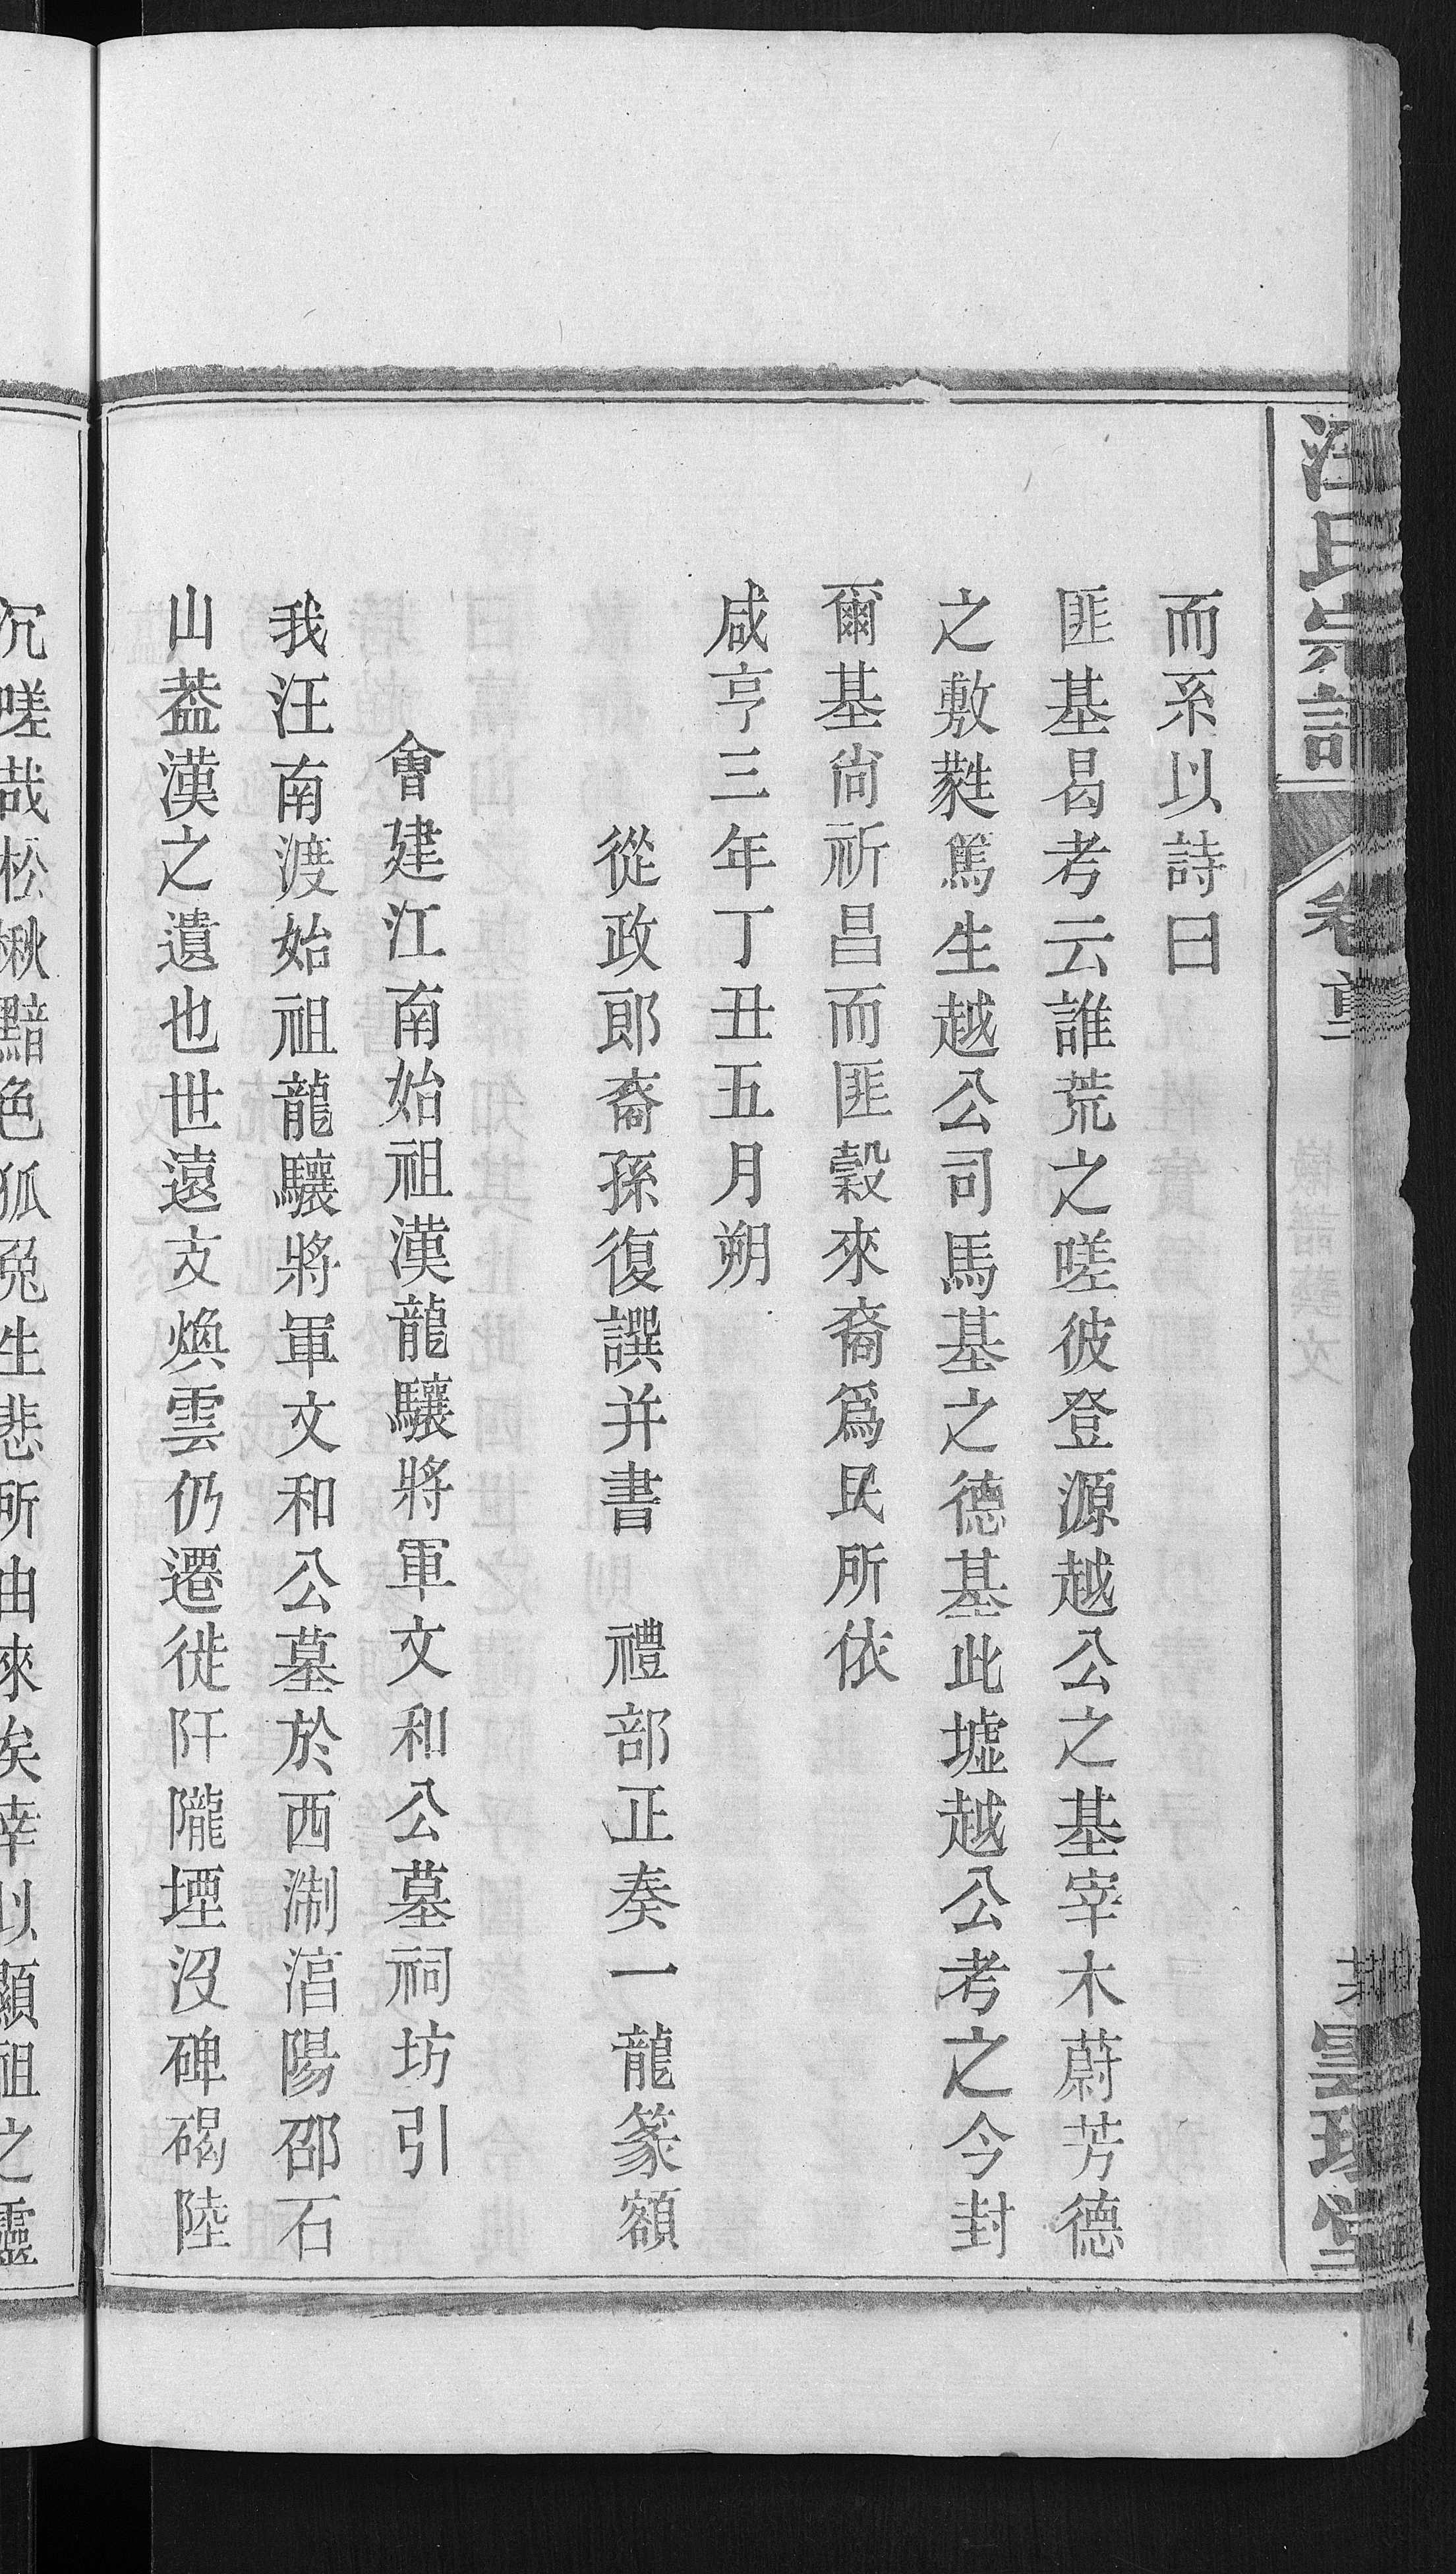 汪氏宗譜
卷首
而系以詩曰
匪基曷考云誰荒之嗟彼登源越公之基宰木蔚芳德
之敷蕤篤生越公司馬基之德基此墟越公考之今封
爾基尙祈昌而匪穀來裔爲民所依
咸亨三年丁丑五月朔
從政郎裔孫復譔并書 禮部正奏一龍篆額
會建江南始祖漢龍驤將軍文和公墓祠坊引
我汪南渡始祖龍驤將軍文和公墓於西淛㳷陽邵石
山葢漢之遺也世遠支煥雲仍遷徙阡隴堙沒碑碣陸
沉嗟哉松楸黯色狐兎生悲所由來矣幸以顯祖之靈